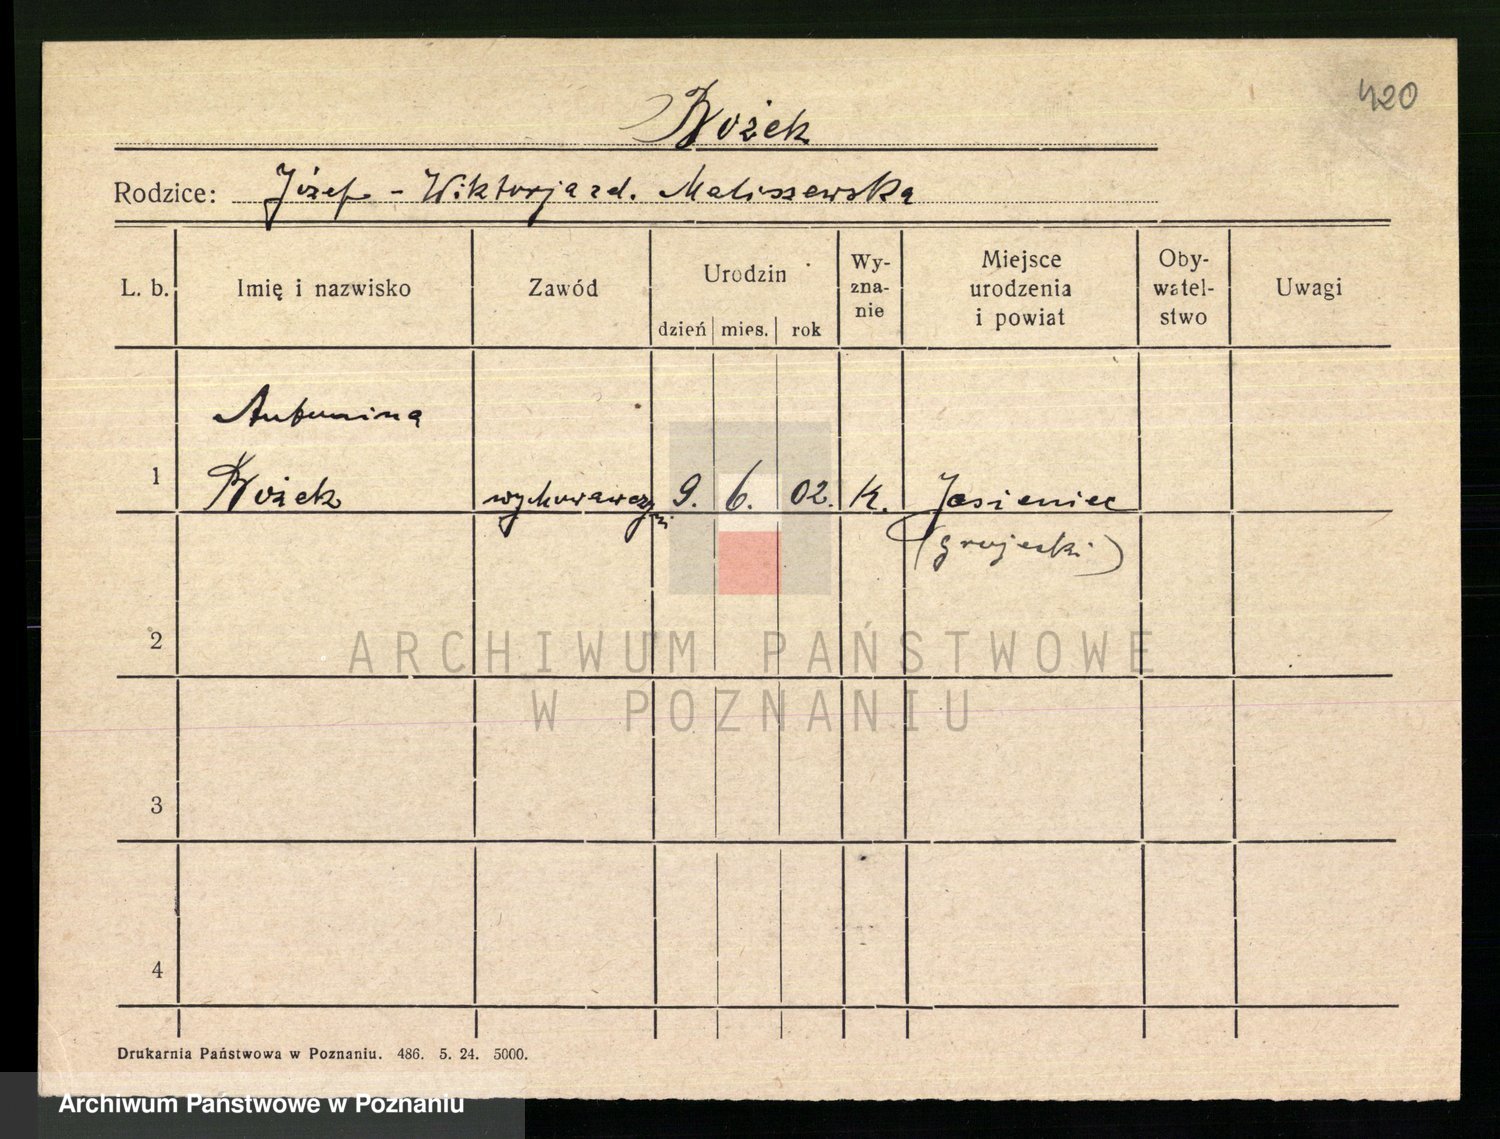 420
Bożek
Rodzice: Józef - Wiktorja zd. Maliszewska
L. b. Imię i nazwisko Zawód Urodzin dzień mies. rok Wy-zna-nie Miejsce urodzenia i powiat Oby-watel-stwo Uwagi
Antonina
1 Bożek wychowawczyni 9. 6. 02. K. Jasieniec
(grojecki)
2
ARCHIWUM PAŃSTWOWE
W POZNANIU
3
4
Drukarnia Państwowa w Poznaniu. 486. 5. 24. 5000.
Archiwum Państwowe w Poznaniu